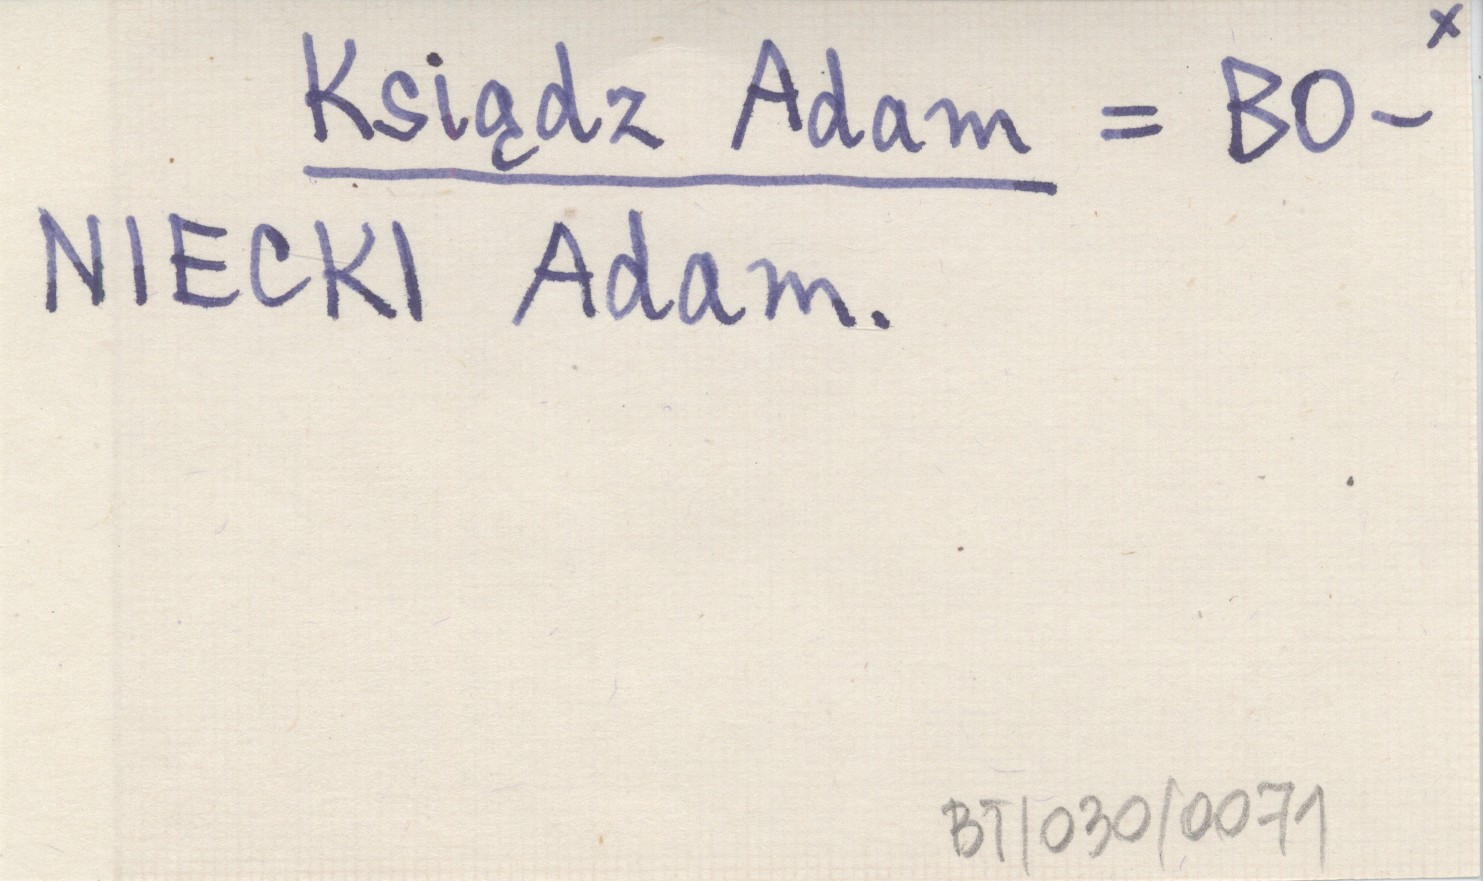 x
Ksiądz Adam = BO-
NIECKI Adam.
BT/030/0071